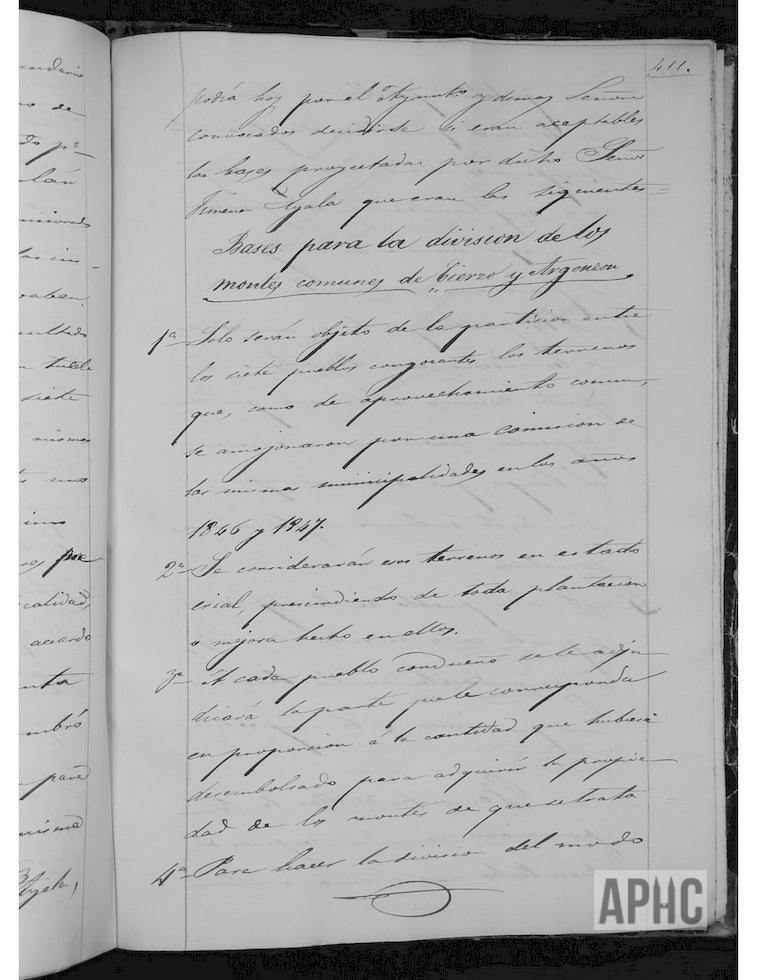 411.
podía hoy por el Ayunto y demas Señores
convocados decidirse si eran aceptables
las bases proyectadas por dicho Señor
Jimenez Ayala que eran las siguientes=
Bases para la division de los
montes comunes de Cierzo y Argenzon.
1ª Solo serán objeto de la particion entre
los siete pueblos congozantes los terrenos
que, como de aprovechamiento comun,
se amojonaron por una comision de
las mismas municipalidades en los años
1846 y 1847.
2ª Se considerarán esos terrenos en estado
erial, prescindiendo de toda plantacion
o mejora hecho en ellos.
3ª A cada pueblo condueño se le adju
dicará la parte que le corresponda
en proporcion á la cantidad que hubiere
desembolsado para adquirir la propie
dad de los montes de que se trata
4ª Para hacer la division del modo
do pª
siete
calidad,
acuerdo
mbró
misma
Ayala,
APHC